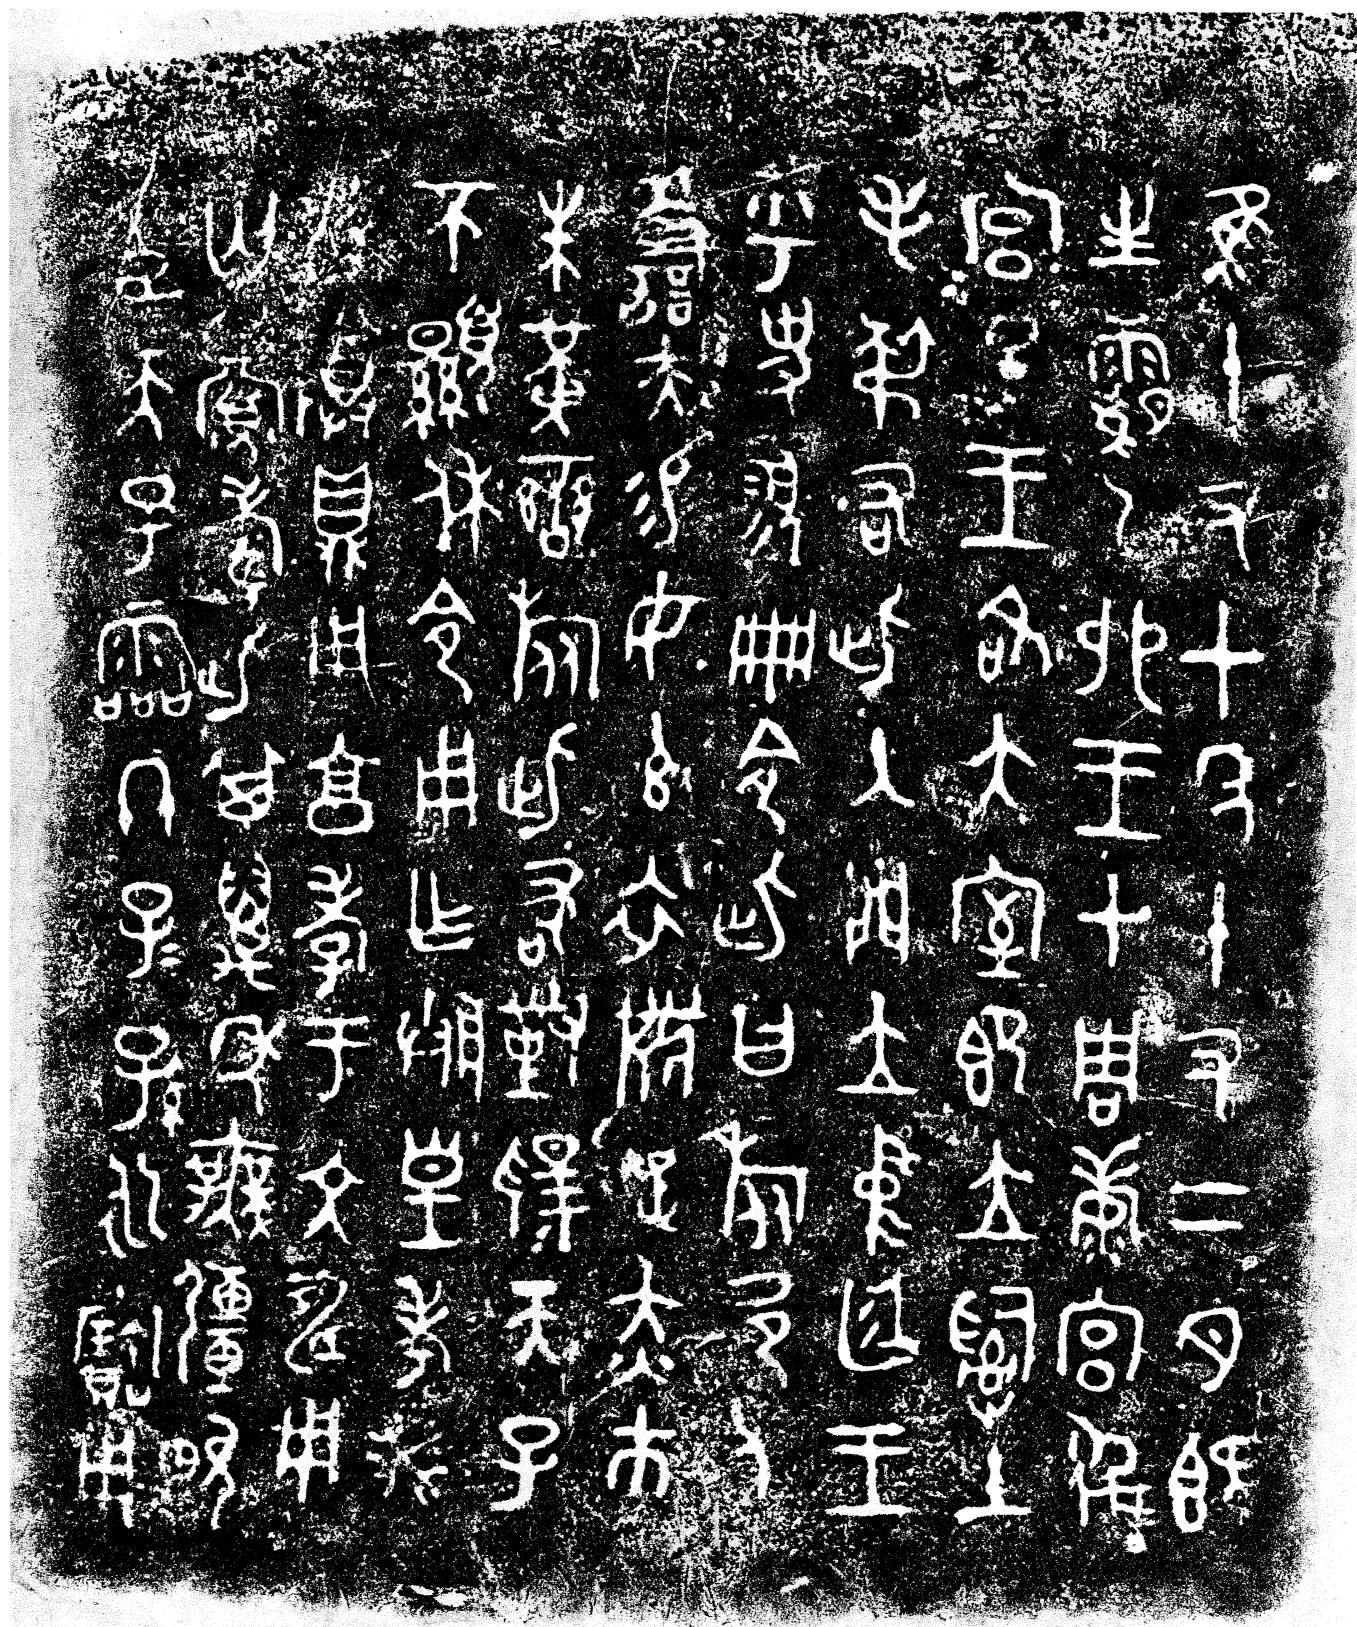 隹十又七年十又二月既
生霸乙卯王才周康宮徲
宮旦王各大室即立𤔲土
毛弔右此入門立中廷王
乎史翏冊令此曰旅邑人
善夫易女玄衣黹屯赤巿
朱黃䜌旅此敢對揚天子
不顯休令用乍朕皇考癸
公尊鼎用享孝于文申用
匄眉壽此其萬年無彊畯
臣天子霝冬子=孫=永寶用